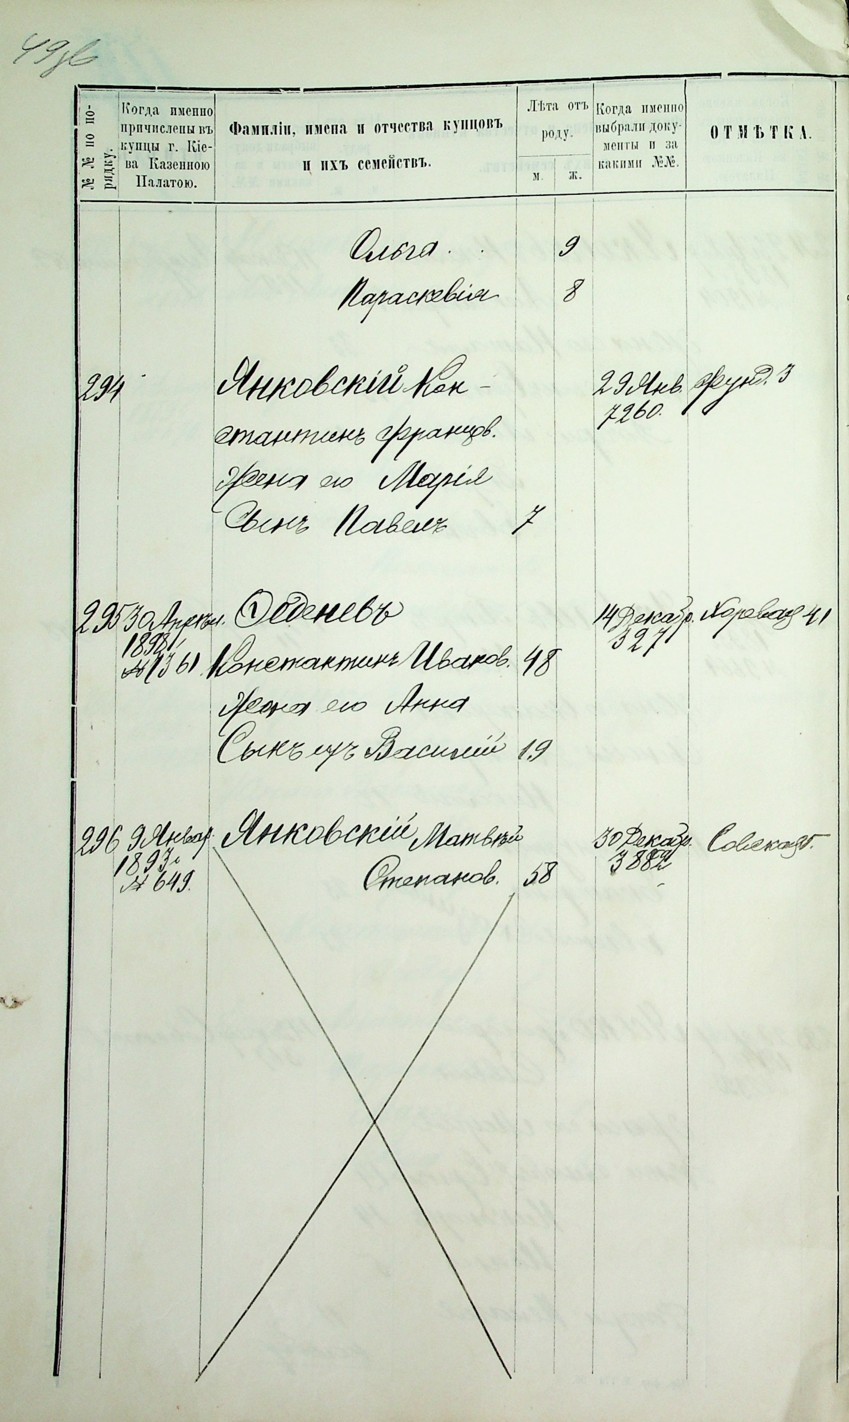 49об
№ № по порядку.
Когда именно
причислены въ
купцы г. Кіе-
ва Казенною
Палатою.
Фамиліи, имена и отчества купцовъ
и ихъ семействъ.
Лѣта отъ
роду.
м.
ж.
Когда именно
выбрали доку-
менты и за
какими №№.
ОТМѢТКА.
Ольга 9
Параскевія 8
294 Янковскій Кон- 29 Янв. Фунд. 3
7260.
стантинъ Францов.
Жена его Марія
Сынъ Павелъ 7
295 30 Апрѣл. Ѳеденевъ 14 Декабр. Хоревая 41
1892 г. 327
№ 1361 Константинъ Иванов. 48
Жена его Анна
Сынъ ихъ Василій 19
296 9 Января Янковскій Матвѣй 30 Декабр.
1893 г. 3882
№ 649. Степанов. 58